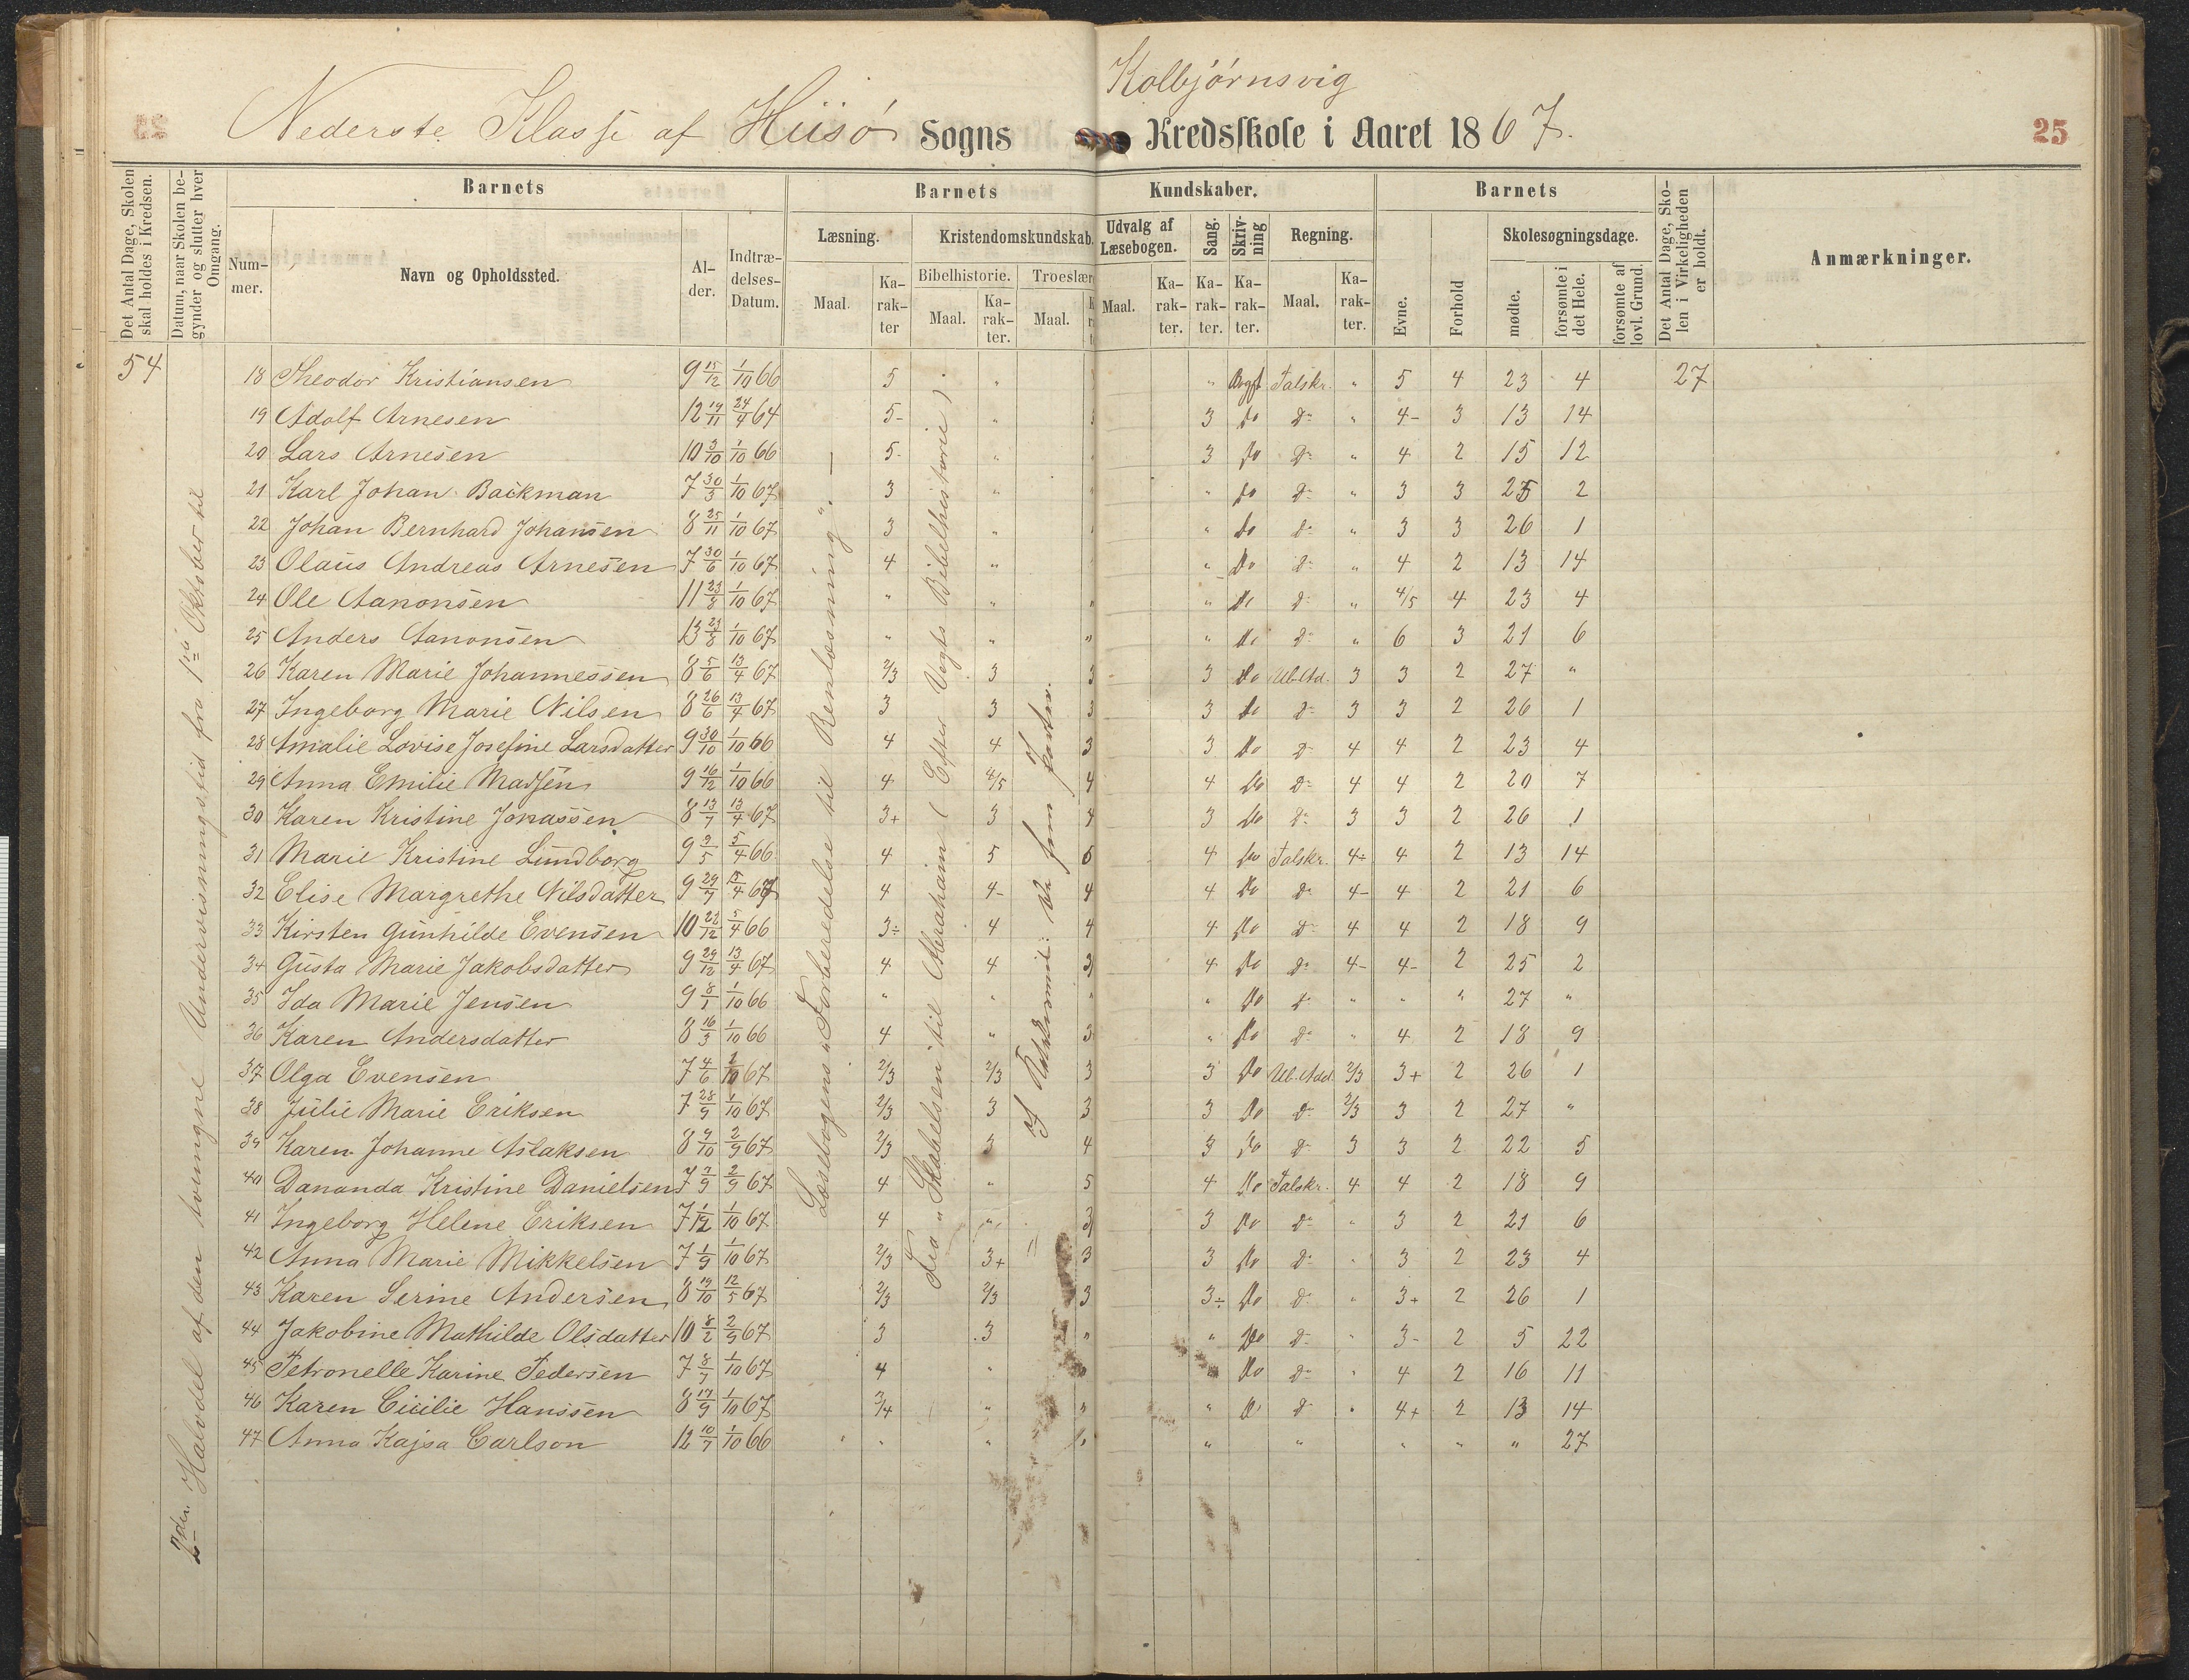 Kolbjørnsvig
Nederste Klasse af Hiisø Sogns Kredsskole i Aaret 1867.
25
Det Antal Dage, Skolen skal holdes i Kredsen.
Datum, naar Skolen begynder og slutter hver Omgang.
Barnets
Barnets Kundskaber.
Barnets
Det Antal Dage, Skolen i Virkeligheden er holdt.
Anmærkninger.
Nummer.
Navn og Opholdssted.
Alder.
Indtrædelses-Datum.
Læsning.
Kristendomskundskab.
Udvalg af Læsebogen.
Sang.
Skrivning
Regning.
Evne.
Forhold
Skolesøgningsdage.
Bibelhistorie.
Troeslær
Maal. Karakter Maal. Karakter. Maal. Maal. Karakter. Karakter. Karakter. Maal. Karakter.
mødte. forsømte i det Hele. forsømte af lovl. Grund.
54
2den Halvdel af den tvungne Undervisningstid fra 1ste Oktober til
Læsebogens "Forberedelse til Renlæsning".
Fra "Skabelsen til Abraham (Efter Vogts Bibelhistorie)
18 Theodor Kristiansen 9 15/12 1/10 66 5 " " Talskr. " 5 4 23 4 27
19 Adolf Arnesen 12 19/11 24/4 64 5- " 3 Do Do " 4- 3 13 14
20 Lars Arnesen 10 3/10 1/10 66 5- " 3 Do Do " 4 2 15 12
21 Karl Johan Backman 7 30/5 1/10 67 3 " " Do Do " 3 3 25 2
22 Johan Bernhard Johansen 8 25/11 1/10 67 3 " " Do Do " 3 3 26 1
23 Olaus Andreas Arnesen 7 30/6 1/10 67 4 " " Do Do " 4 2 13 14
24 Ole Aanonsen 11 23/8 1/10 67 " " " " Do Do " 4/5 4 23 4
25 Anders Aanonsen 13 23/8 1/10 67 " " " " Do Do " 6 3 21 6
26 Karen Marie Johannessen 8 5/6 13/4 67 2/3 3 3 3 Do Ub. Ad. 3 3 2 27 "
27 Ingeborg Marie Nilsen 8 26/6 13/4 67 3 3 3 3 Do Do 3 3 2 26 1
28 Amalie Lovise Josefine Larsdatter 9 30/10 1/10 66 4 4 3 3 Do Do 4 4 2 23 4
29 Anna Emilie Madsen 9 16/12 1/10 66 4 4/5 4 4 Do Do 4 4 2 20 7
30 Karen Kristine Jonassen 8 13/7 13/4 67 3+ 3 4 3 Do Do 3 3 2 26 1
31 Marie Kristine Lundborg 9 9/5 5/4 66 4 5 6 4 Do Talskr. 4÷ 4 2 13 14
32 Elise Margrethe Nilsdatter 9 29/7 15/4 67 4 4- 4 4 Do Do 4- 4 2 21 6
33 Kirsten Gunhilde Evensen 10 22/12 5/4 66 3÷ 4 4 4 Do Do 4 4 2 18 9
34 Gusta Marie Jakobsdatter 9 29/12 13/4 67 4 4 3 4 Do Do 4- 4- 2 25 2
35 Ida Marie Jensen 9 8/1 1/10 66 " " " " Do Do " " " 27 "
36 Karen Andersdatter 8 16/3 1/10 66 4 " 3 " Do Do " 4 2 18 9
37 Olga Evensen 7 4/6 1/10 67 2/3 2/3 3 3 Do Ub. Add. 2/3 3+ 2 26 1
38 Julie Marie Eriksen 7 28/9 1/10 67 2/3 3 3 3 Do Do 2/3 3 2 27 "
39 Karen Johanne Aslaksen 8 9/10 2/9 67 2/3 3 4 3 Do Do 3 3 2 22 5
40 Dananda Kristine Danielsen 7 7/9 2/9 67 4 " 5 4 Do Talskr. 4 4 2 18 9
41 Ingeborg Helene Eriksen 7 1/12 1/10 67 4 " 3 3 Do Do " 3 2 21 6
42 Anna Marie Mikkelsen 7 1/9 1/10 67 2/3 3+ 3 3 Do Do " 3 2 23 4
43 Karen Serine Andersen 8 19/10 12/5 67 2/3 2/3 3 3÷ Do Do " 3+ 2 26 1
44 Jakobine Mathilde Olsdatter 10 8/2 2/9 67 3 3 " " Do Do " 3- 2 5 22
45 Petronelle Karine Pedersen 7 8/7 1/10 67 4 " Do Do " 4 2 16 11
46 Karen Cicilie Hanssen 8 17/9 1/10 67 3/4 " " " Do Do " 4+ 2 13 14
47 Anna Kajsa Carlson 12 10/7 1/10 66 " " " " " " " 27